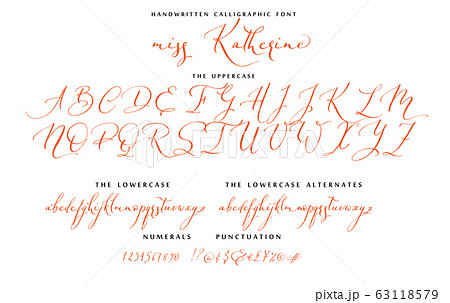 HANDWRITTEN CALLIGRAPHIC FONT
miss Katherine
THE UPPERCASE
A B C D E F G H I J K L M
N O P Q R S T U V W X Y Z
THE LOWERCASE
abcdefghijklmnopqrstuvwxyz
THE LOWERCASE ALTERNATES
abcdefghijklmnopqrstuvwxyz
NUMERALS
1234567890
PUNCTUATION
pixta
63118579